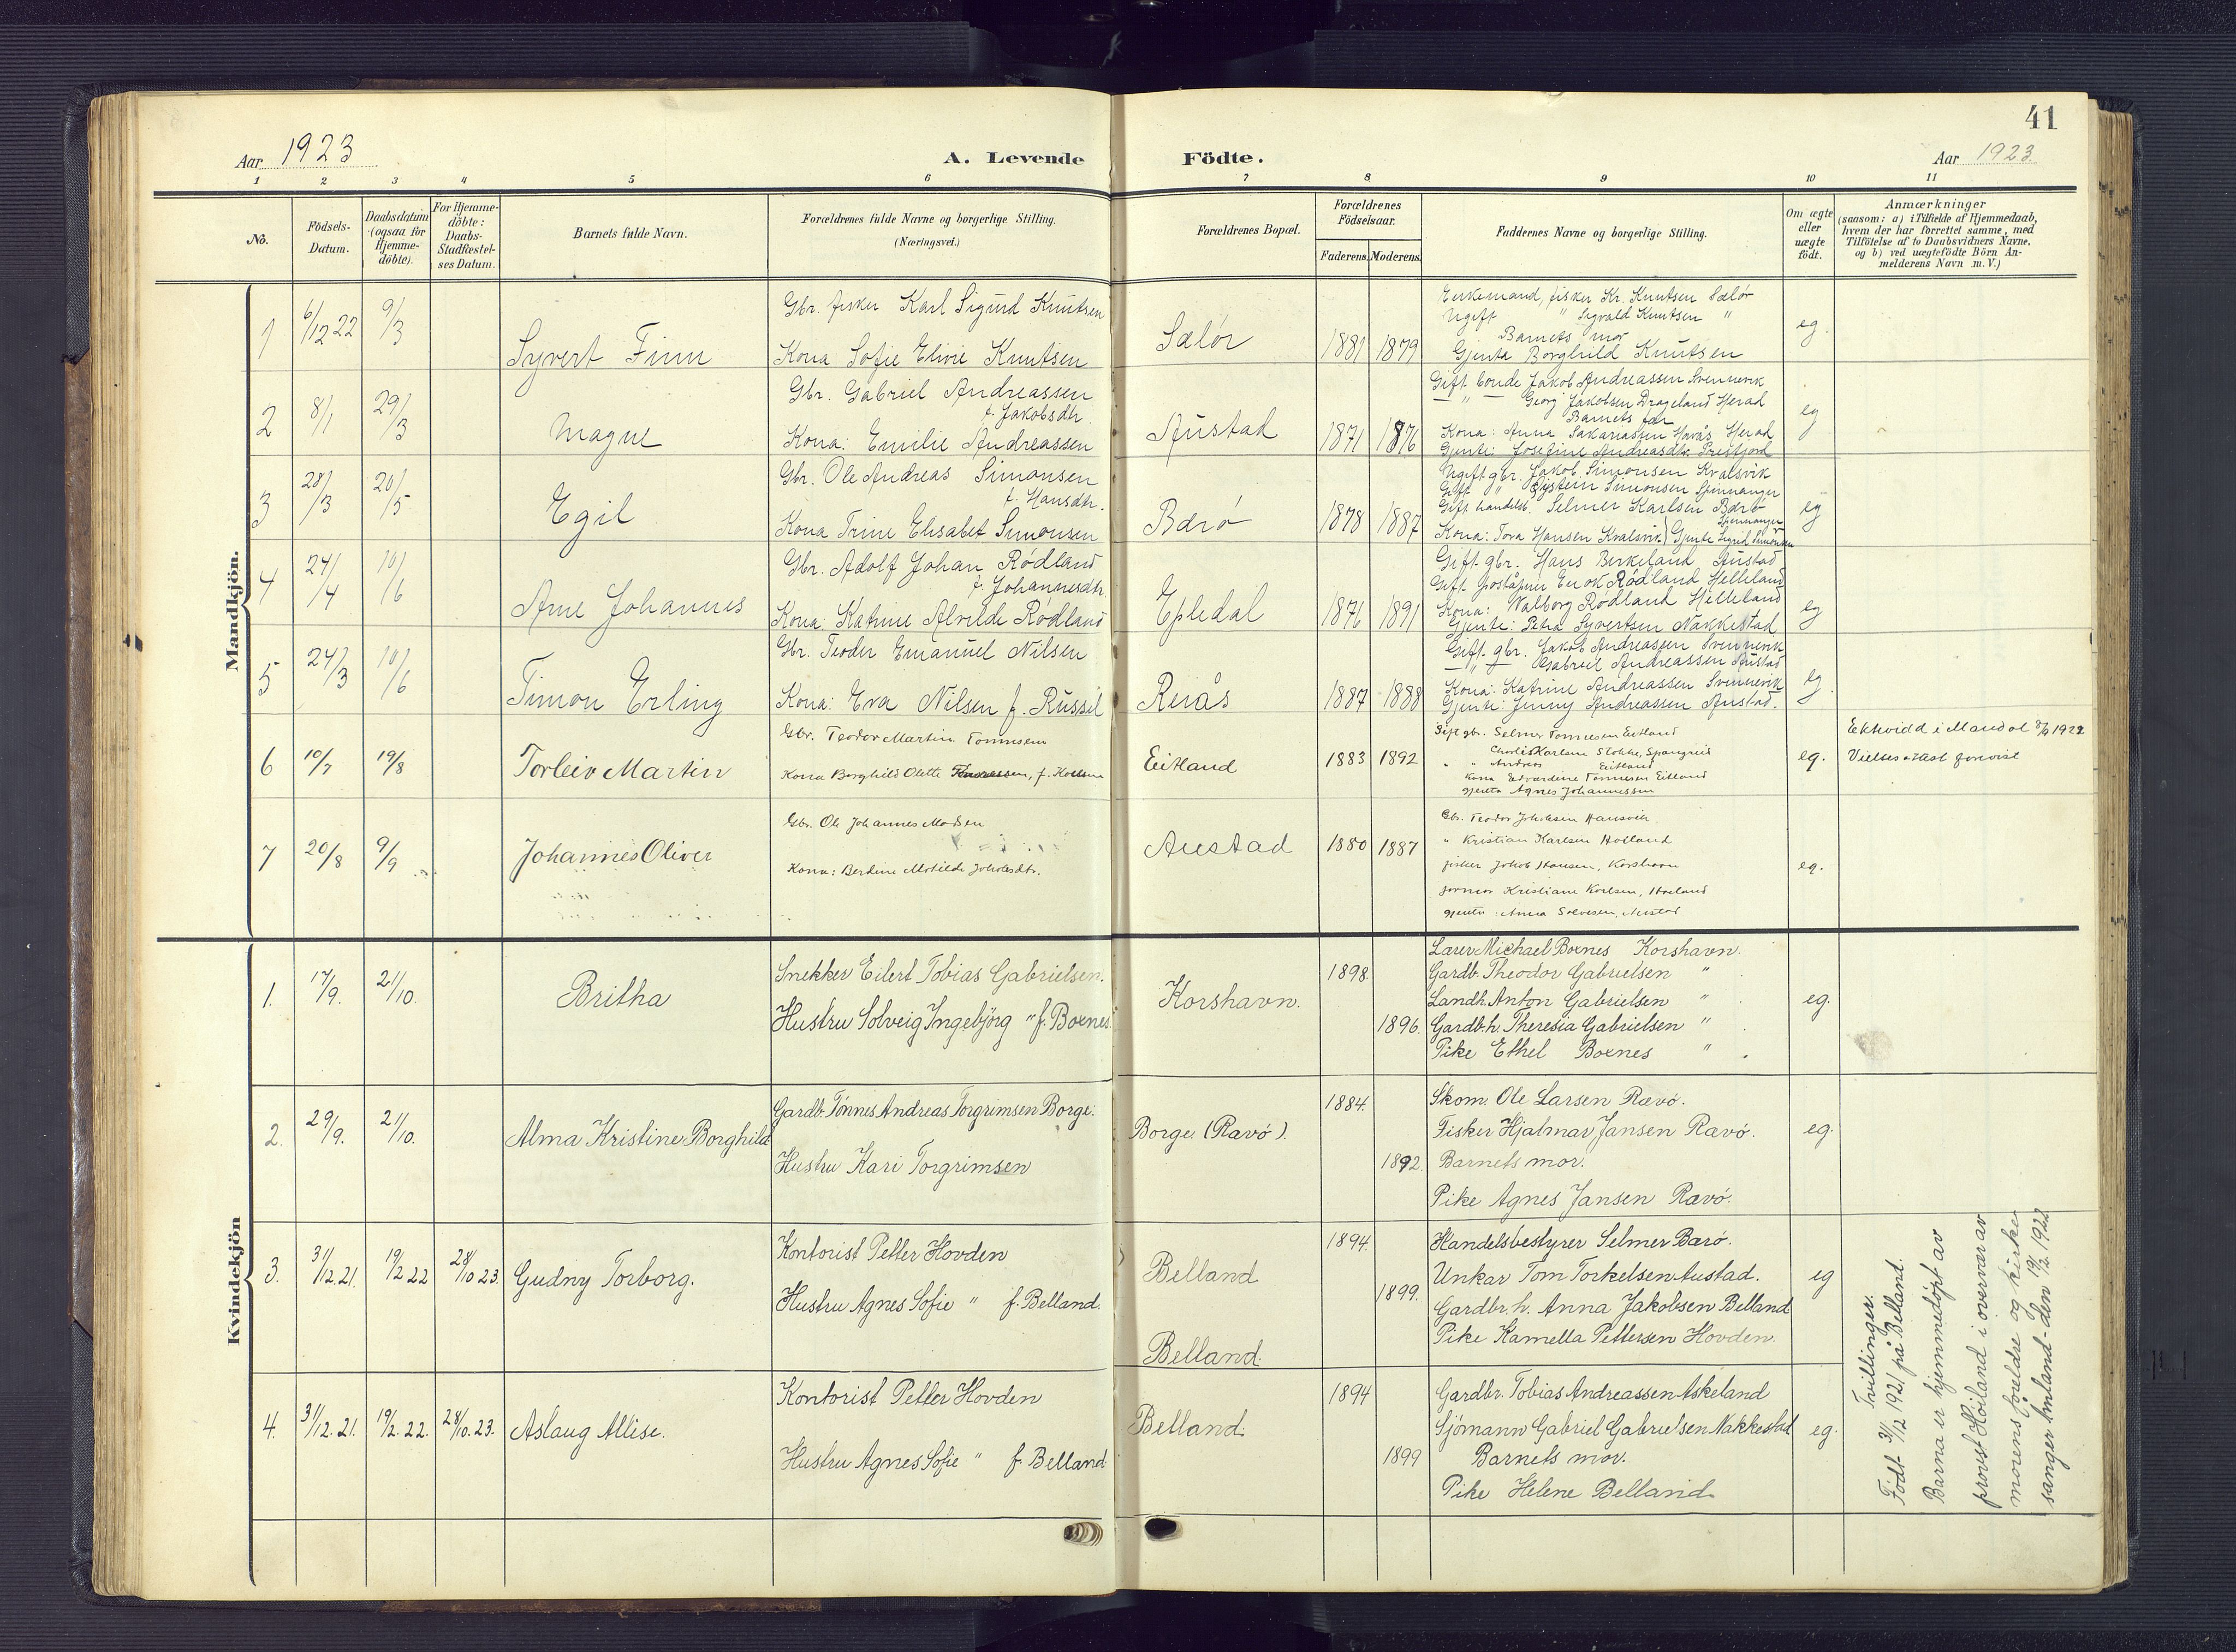 41
Aar 1923
A. Levende Födte.
Aar 1923.
1 2 3 4 5 6 7 8 9 10 11
No.
Födsels-Datum.
Daabsdatum (ogsaa for Hjemme-döbte).
For Hjemme-döbte: Daabs-Stadfæstel-ses Datum.
Barnets fulde Navn.
Forældrenes fulde Navne og borgerlige Stilling.
(Næringsvei.)
Forældrenes Bopæl.
Forældrenes Födselsaar.
Faderens. Moderens.
Faddernes Navne og borgerlige Stilling.
Om ægte eller uægte födt.
Anmærkninger
(saasom: a) i Tilfælde af Hjemmedaab,
hvem der har forrettet samme, med
Tilföielse af to Daabsvidners Navne.
og b) ved uægtefödte Börn An-
melderens Navn m. V.)
Mandkjön.
1 6/12 22 9/3 Syvert Finn
Gbr. fisker Karl Sigurd Knutsen
Kona Sofie Elivie Knutsen
Sælör 1881 1879
Enkemand, fisker Kr. Knutsen Sælör
Ugift " Sigvald Knutsen "
Barnets mor
Gjenta Borghild Knutsen
eg.
2 8/1 29/3 Magne
Gbr. Gabriel Andreassen
f. Jakobsdtr.
Kona: Emilie Andreassen
Austad 1871 1876
Gift bonde Jakob Andreassen Svennevik
— " — Georg Jakobsen Drageland Herad
Barnets far
Kona: Anna Sakariassen Havås Herad
Gjente: Josefine Andreasdtr. Prestfjord
eg
3 28/3 20/5 Egil
Gbr. Ole Andreas Simonsen
f. Hansdtr.
Kona Trine Elisabet Simonsen
Bærö 1878 1887
Ugift gbr. Jakob Simonsen Kvalsvik
Gift " Öistein Simonsen Spinnanger
Gift handelsb. Selmer Karlsen Bærö
Kona: Tora Hansen Kvalsvik) Gjente Sigrid Simonsen
Spinnanger
eg
4 24/4 10/6 Arne Johannes
Gbr. Adolf Johan Rödland
f. Johannesdtr.
Kona: Katrine Alvilde Rödland
Epledal 1876 1891
Gift gbr. Hans Birkeland Austad
Gift poståpner Enok Rödland Helleland
Kona: Valborg Rödland Helleland
Gjente: Petra Syvertsen Nakkestad
eg
5 24/3 10/6 Timon Erling
Gbr. Teodor Emanuel Nilsen
Kona: Eva Nilsen f. Russel
Reiås 1887 1888
Gift gbr. Jakob Andreassen Svennevik
— " — Gabriel Andreassen Austad
Kona: Katrine Andreassen Svennevik
Gjente: Jenny Andreassen Austad.
eg.
6 10/7 19/8 Torleiv Martin
Gbr. Teodor Martin Tønnesen
Kona Borghild Olette
Eitland 1883 1892
Gift gbr. Selmer Tønnesen Eitland
" " Charles Karlsen Stokke, Spangreid
" " Andreas Eitland
Kona Edvardine Tønnesen Eitland
gjenta Agnes Johannessen
eg.
Ektevidd i Mandal 1922
Vielsesattest forevist
7 20/8 9/9 Johannes Oliver
Gbr. Ole Johannes Madsen
Kona: Berdine Matilde Jakobsdtr.
Austad 1880 1887
Gbr. Teodor Jakobsen Hansvik
" Kristian Karlsen Hoiland
fisker Jakob Hansen, Korshavn
formor Kristiane Karlsen, Hoeland
gjenta: Anna Salvesen, Austad
eg.
Kvindekjön
1. 17/9. 21/10. Britha
Snekker Eilert Tobias Gabrielsen.
Hustru Solveig Ingebjörg " f. Boxnes.
Korshavn. 1898. 1896.
Lærer Michael Boxnes Korshavn.
Gardb. Theodor Gabrielsen " .
Landh. Anton Gabrielsen " .
Gardb.h. Theresia Gabrielsen " .
Pike Ethel Boxnes " .
eg.
2. 29/9. 21/10. Alma Kristine Borghild
Gardb. Tönnes Andreas Torgrimsen Borge.
Hustru Kari Torgrimsen
Borge (Rævö). 1884. 1892.
Skom. Ole Larsen Rævö.
Fisker Hjalmar Jansen Rævö.
Barnets mor.
Pike Agnes Jansen Rævö.
eg.
3. 31/12.21. 19/2 22 28/10 23. Gudny Torborg.
Kontorist Petter Hovden
Hustru Agnes Sofie " f. Belland.
Belland
Belland.
1894. 1899.
Handelsbestyrer Selmer Bærö.
Unkar Tom Torkelsen Austad.
Gardbr.h. Anna Jakobsen Belland
Pike Kamella Pettersen Hovden.
eg
4. 31/12.21. 19/2.22. 28/10.23. Aslaug Allise.
Kontorist Petter Hovden
Hustru Agnes Sofie " f. Belland
Belland. 1894 1899
Gardbr. Tobias Andreassen Askeland
Sjömann Gabriel Gabrielsen Nakkestad
Barnets mor.
Pike Helene Belland
eg.
Tvillinger.
Födt 31/12 1921 på Belland.
Barna er hjemmedöpt av
provst Höiland i overvær av
morens foreldre og kirke-
sanger den 19/2 1922